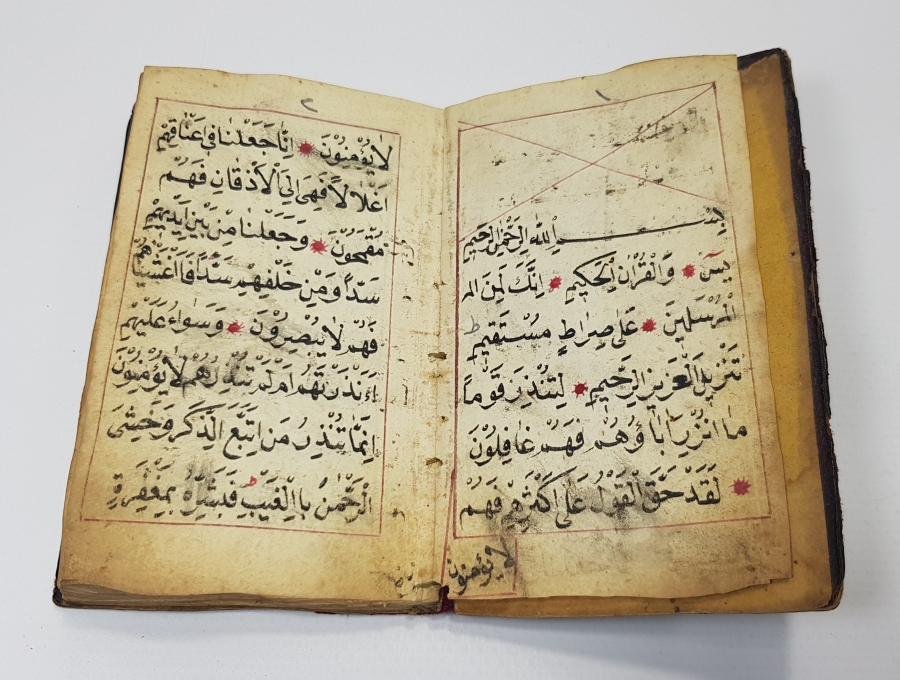 ١
بِسْــــمِ اللهِ الرَّحْمٰنِ الرَّحِيمِ
يسٓ وَالْقُرْاٰنِ الْحَكِيمِ اِنَّكَ لَمِنَ المر
الْمُرْسَلِينَ عَلٰى صِرَاطٍ مُسْتَقِيمٍ ط
تَنْزِيلَ الْعَزِيزِ الرَّحِيمِ لِتُنْذِرَ قَوْماً
مَا اُنْذِرَ اٰبَاؤُهُمْ فَهُمْ غَافِلُوْنَ
لَقَدْ حَقَّ الْقَوْلُ عَلٰى اَكْثَرِهِمْ فَهُمْ
لا يؤمنون
٢
لَا يُؤْمِنُوْنَ اِنَّا جَعَلْنَا فِى اَعْنَاقِهِمْ
اَغْلَالاً فَهِىَ اِلَى الْاَذْقَانِ فَهُمْ
مُقْمَحُوْنَ وَجَعَلْنَا مِنْ بَيْنِ اَيْدِيهِمْ
سَدّاً وَمِنْ خَلْفِهِمْ سَدّاً فَاَغْشَيْنَاهُمْ
فَهُمْ لَا يُبْصِرُوْنَ وَسَوَاءٌ عَلَيْهِمْ
ءَاَنْذَرْتَهُمْ اَمْ لَمْ تُنْذِرْهُمْ لَا يُؤْمِنُوْنَ
اِنَّمَا تُنْذِرُ مَنِ اتَّبَعَ الذِّكْرَ وَخَشِىَ
الرَّحْمٰنَ بِاالْغَيْبِ فَبَشِّرْهُ بِمَغْفِرَةٍ